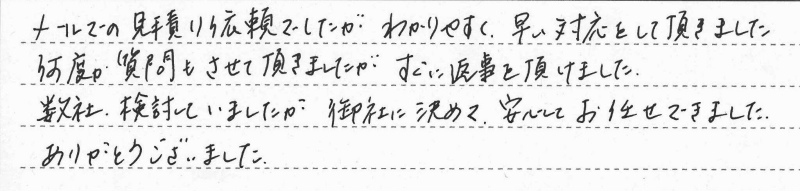 メールでの見積り依頼でしたが わかりやすく、早い対応をして頂きました
何度か質問もさせて頂きましたが すぐに返事を頂けました。
数社、検討していましたが 御社に決めて、安心してお任せできました。
ありがとうございました。